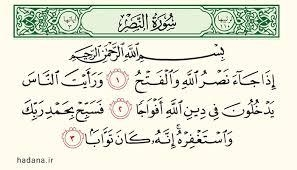 سورة النصر
بِسْمِ اللَّهِ الرَّحْمَٰنِ الرَّحِيمِ
إِذَا جَآءَ نَصْرُ اللَّهِ وَالْفَتْحُ ١ وَرَأَيْتَ النَّاسَ
يَدْخُلُونَ فِي دِينِ اللَّهِ أَفْوَاجًا ٢ فَسَبِّحْ بِحَمْدِ رَبِّكَ
وَاسْتَغْفِرْهُ إِنَّهُ كَانَ تَوَّابًا ٣
hadana.ir